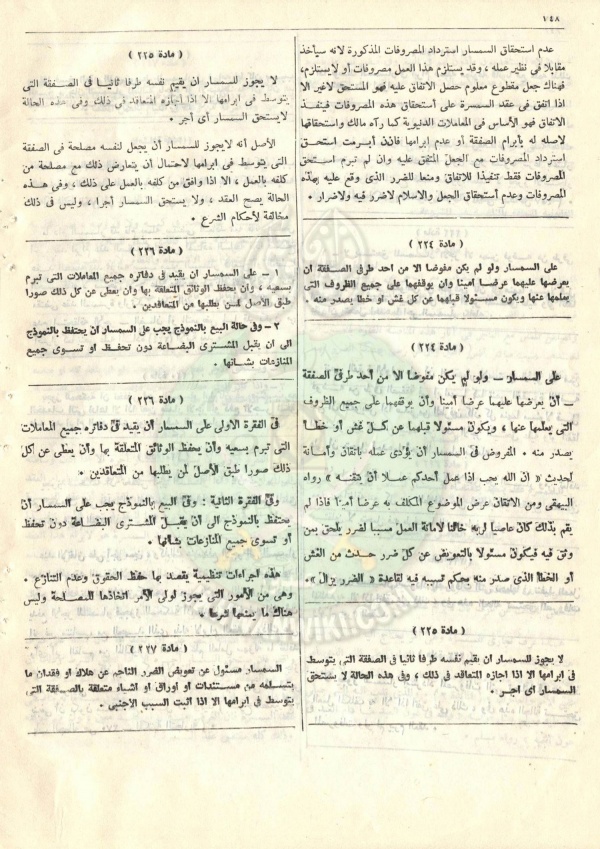 ١٤٨
عدم استحقاق السمسار استرداد المصروفات المذكورة لانه سيأخذ
مقابلا فى نظير عمله ، وقد يستلزم هذا العمل مصروفات أو لايستلزم،
فهناك جعل مقطوع معلوم حصل الاتفاق عليه فهو المستحق لاغير الا
اذا اتفق فى عقد السمسرة على أستحقاق هذه المصروفات فينفذ
الاتفاق فهو الأساس فى المعاملات الدنيوية كما رآه مالك واستحقاقها
لاصله له بأبرام الصفقة أو عدم ابرامها فاذن أبـرمت استحـق
استرداد المصروفات مع الجعل المتفق عليه وان لم تبرم استـحق
المصروفات فقط تنفيذا للاتفاق ومنعا للضرر الذى وقع عليه بهذه
المصروفات وعدم أستحقاق الجعل والاسلام لاضرر فيه ولاضرار .
( مادة ٢٢٤ )
على السمسار ولو لم يكن مفوضا الا من احد طرفى الصفقة ان
يعرضها عليهما عرضا امينا وان يوقفهما على جميع الظروف التى
يعلمها عنها ويكون مسئولا قبلهما عن كل غش او خطا يصدر منه .
( مادة ٢٢٤ )
على السمسار – ولو لم يكن مفوضا الا من أحد طرفى الصفقة
– أن يعرضها عليهما عرضا أمينا وأن يوقفهما على جميع الظروف
التى يعلمها عنها ، ويكون مسئولا قبلهما عن كـل غش أو خطـأ
يصدر منه . المفروض فى السمسار أن يؤدى عمله باتقان وأمـانة
لحديث « ان الله يحب اذا عمل أحدكم عمـلا أن يتقنـه » رواه
البيهقى ومن الاتقان عرض الموضوع المكلف به عرضا أمينا فاذا لم
يقم بذلك كان عاصيا لربه خائنا لامانة العمل مسببا لضرر يلحق بمن
وثق فيه فيكون مسئولا بالتعويض عن كل ضرر حـدث من الغش
أو الخطأ الذى صدر منه بحكم تسببه فيه لقاعدة « الضرر يزال».
( مادة ٢٢٥ )
لا يجوز للسمسار ان يقيم نفسه طرفا ثانيا فى الصفقة التى يتوسط
فى ابرامها الا اذا اجازه المتعاقد فى ذلك ، وفى هذه الحالة لا يستحق
السمسار اى اجـر .
( مادة ٢٢٥ )
لا يجوز للسمسار ان يقيم نفسه طرفا ثانيـا فى الصفقـة التى
يتوسط فى ابرامها الا اذا اجازه المتعاقد فى ذلك وفى هذه الحالة
لايستحق السمسار أى أجر .
الأصل أنه لايجوز للسمسار أن يجعل لنفسه مصلحة فى الصفقة
التى يتوسط فى ابرامها لاحتمال أن يتعارض ذلك مع مصلحة من
كلفه بالعمل ، الا اذا وافق من كلفه بالعمل على ذلك ، وفى هـذه
الحالة يصح العقد ، ولا يستحق السمسار أجرا ، وليس فى ذلك
مخالفة لأحكام الشرع .
( مادة ٢٣٦ )
١ – على السمسار ان يقيد فى دفاتره جميع المعاملات التى تبرم
بسعيه ، وان يحفظ الوثائق المتعلقة بها وان يعطى عن كل ذلك صورا
طبق الأصل لمن يطلبها من المتعاقدين .
٢ – وفى حالة البيع بالنموذج يجب على السمسار ان يحتفظ بالنموذج
الى ان يقبل المشترى البضاعة دون تحفـظ او تسوى جميع
المنازعات بشانها .
( مادة ٢٣٦ )
فى الفقرة الاولى على السمسار أن يقيد فى دفاتره جميع المعاملات
التى تبرم بسعيه وأن يحفظ الوثائق المتعلقة بها وأن يعطى عن كل
ذلك صورا طبق الأصل لمن يطلبها من المتعاقدين .
وفى الفقرة الثانية : وفى البيع بالنموذج يجب على السمسار أن
يحتفظ بالنموذج الى أن يقبـل المشترى البضـاعة دون تحفظ
أو تسوى جميع المنازعات بشأنها .
هذه اجراءات تنظيمية يقصد بها حفظ الحقوق وعدم التنازع .
وهى من الأمور التى يجوز لولى الأمر اتخاذها للمصلحة وليس
هناك ما يمنعها شرعا .
( مادة ٢٢٧ )
السمسار مسئول عن تعويض الضرر الناجم عن هلاك او فقدان ما
يتسلمه من مستندات او اوراق او اشياء متعلقة بالصفقة التى
يتوسط فى ابرامها الا اذا اثبت السبب الأجنبى .